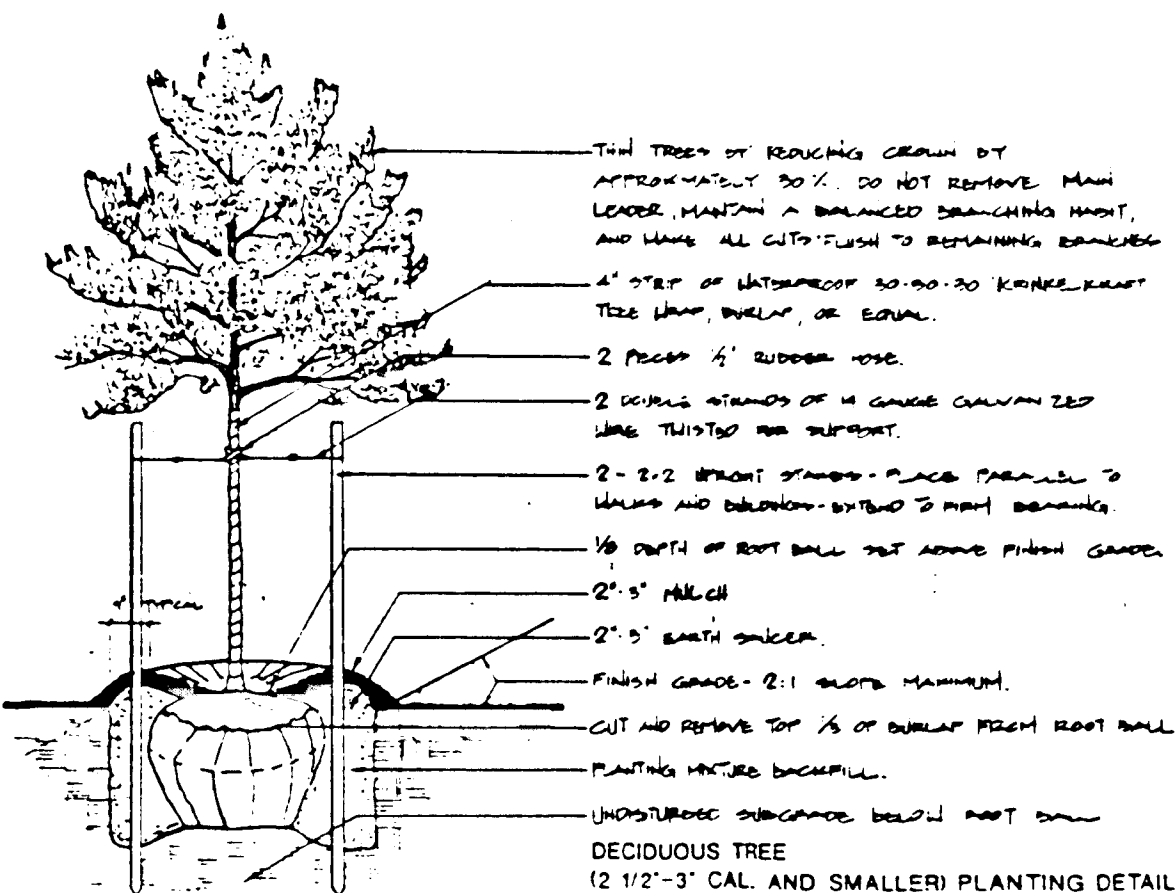 THIN TREES BY REDUCING CROWN BY
APPROXIMATELY 30%. DO NOT REMOVE MAIN
LEADER, MAINTAIN A BALANCED BRANCHING HABIT,
AND MAKE ALL CUTS FLUSH TO REMAINING BRANCHES
4" STRIP OF WATERPROOF 30-30-30 KRINKLE KRAFT
TREE WRAP, BURLAP, OR EQUAL.
2 PIECES 1/2" RUBBER HOSE.
2 DOUBLE STRANDS OF 14 GAUGE GALVANIZED
WIRE TWISTED FOR SUPPORT.
2 - 2x2 UPRIGHT STAKES - PLACE PARALLEL TO
WALKS AND BUILDINGS - EXTEND TO FIRM BEARING.
1/8 DEPTH OF ROOT BALL SET ABOVE FINISH GRADE.
TYPICAL
2"-3" MULCH
2"-3" EARTH SAUCER.
FINISH GRADE - 2:1 SLOPE MAXIMUM.
CUT AND REMOVE TOP 1/3 OF BURLAP FROM ROOT BALL
PLANTING MIXTURE BACKFILL.
UNDISTURBED SUBGRADE BELOW ROOT BALL
DECIDUOUS TREE
(2 1/2"-3" CAL. AND SMALLER) PLANTING DETAIL